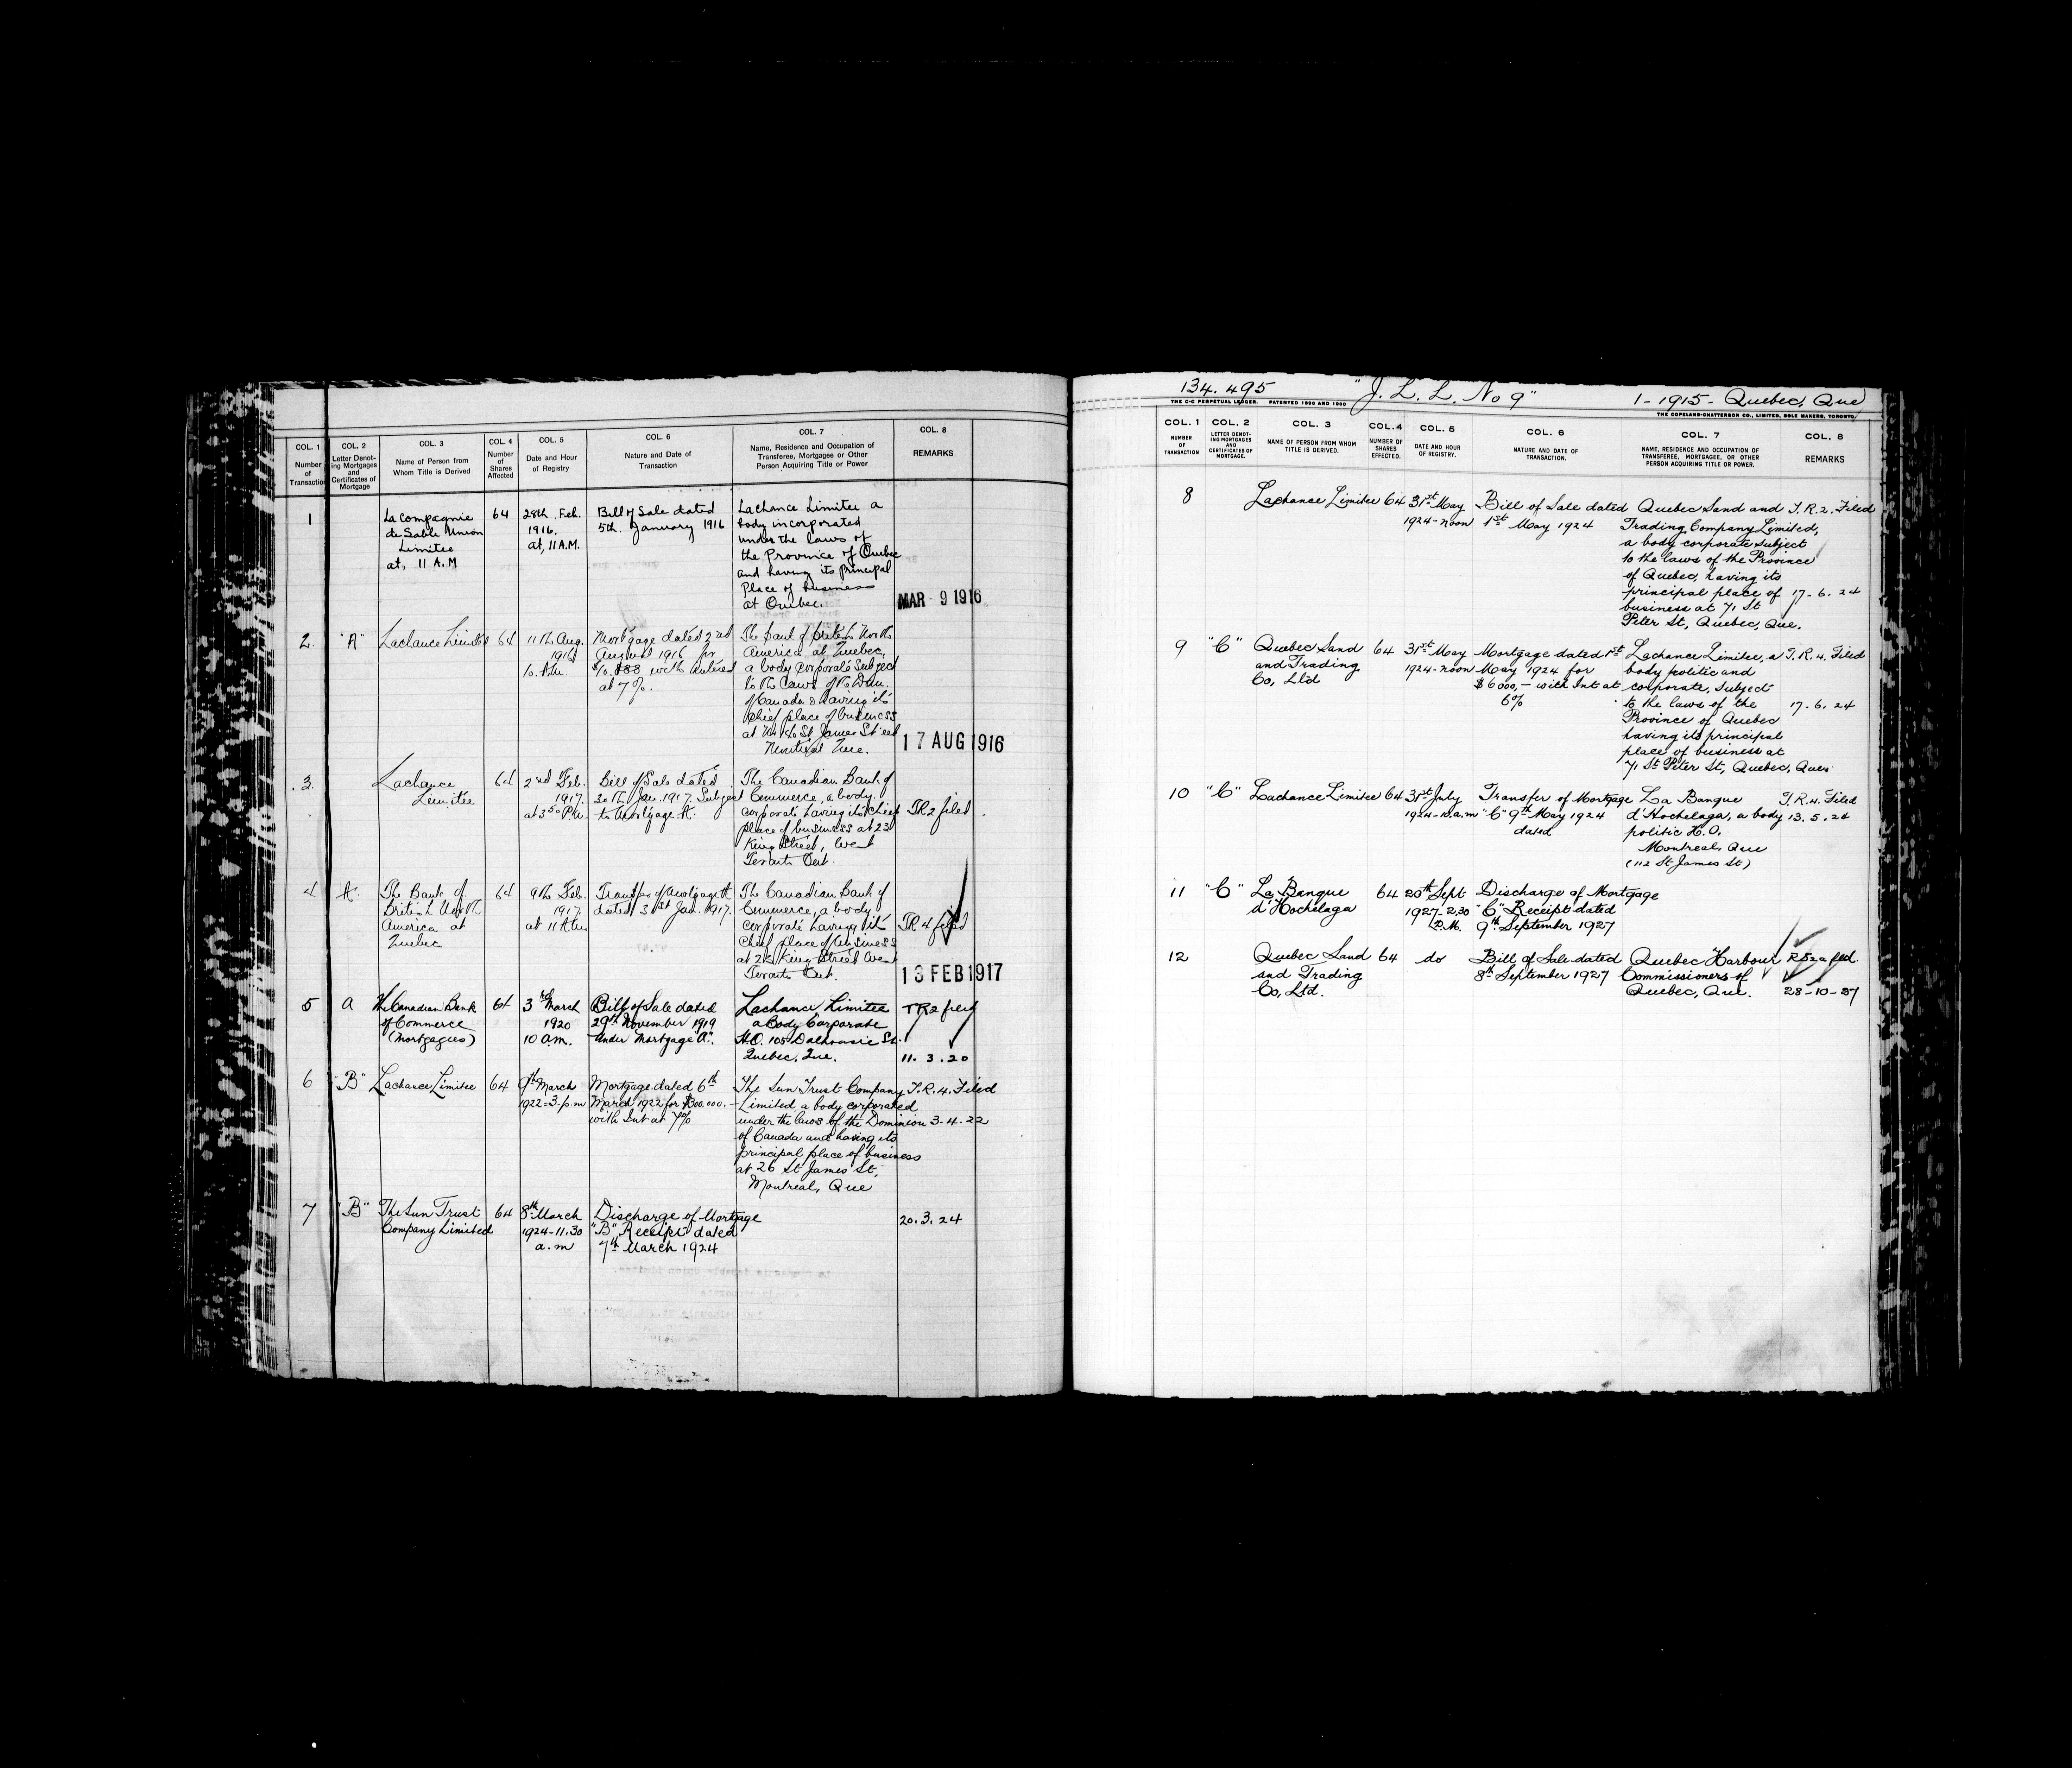 COL. 1
Number
of
Transaction
COL. 2
Letter Denot-
ing Mortgages
and
Certificates of
Mortgage
COL. 3
Name of Person from
Whom Title is Derived
COL. 4
Number
of
Shares
Affected
COL. 5
Date and Hour
of Registry
COL. 6
Nature and Date of
Transaction
COL. 7
Name, Residence and Occupation of
Transferee, Mortgagee or Other
Person Acquiring Title or Power
COL. 8
REMARKS
1
La compagnie
de Sable Union
Limitee
at, 11 A.M
64
28th. Feb.
1916.
at, 11 A.M.
Bill of Sale dated
5th. January 1916
Lachance Limitee a
body incorporated
under the laws of
the Province of Quebec
and having its principal
Place of business
at Quebec.
MAR - 9 1916
2.
"A"
Lachance Limited
64
11th Aug.
1916
10. A.M.
Mortgage dated 2nd
August 1916 for
with interest
at 7%.
The bank of British North
America at Quebec,
a body corporate Subject
to the Laws of the Dom.
of Canada & having its
chief place of business
at St James Street
Montreal Que.
17 AUG 1916
3.
Lachance
Limitée
64
2nd Feb.
1917.
at 3 50 P.M.
Bill of Sale dated
30th Jan. 1917. Subject
to Mortgage A.
The Canadian Bank of
Commerce, a body
corporate having its chief
place of business at 23
King Street, West
Toronto Ont.
TR 2 filed
4
A.
The Bank of
British North
America at
Quebec
64
9th Feb.
1917.
at 11 A.M.
Transfer of Mortgage A
dated 31st Jan. 1917.
The Canadian Bank of
Commerce, a body
corporate having its
chief place of business
at 23 King Street West
Toronto Ont.
TR 4 filed
13 FEB 1917
5
A
The Canadian Bank
of Commerce
(Mortgagees)
64
3rd March
1920
10 a.m.
Bill of Sale dated
29th November 1919
Under Mortgage "A".
Lachance Limitee
a Body Corporate
H.O. 105 Dalhousie St.
Quebec, Que.
TR2 filed
11. 3. 20
6
"B"
Lachance Limitee
64
9th March
1922-3.p.m
Mortgage dated 6th
March 1922 for
with Int at 7%
The Sun Trust Company
Limited a body corporated
under the laws of the Dominion
of Canada and having its
principal place of business
at 26 St James St,
Montreal, Que
T.R.4. Filed
3.4.22
7
"B"
The Sun Trust
Company Limited
64
8th March
1924-11.30
a.m
Discharge of Mortgage
"B", Receipt dated
7th March 1924
20.3.24
134.495
"J. L. L. No 9"
1-1915-Quebec, Que
THE C-C PERPETUAL LEDGER. PATENTED 1896 AND 1900
THE COPELAND-CHATTERSON CO., LIMITED, SOLE MAKERS, TORONTO.
COL. 1
NUMBER
OF
TRANSACTION
COL. 2
LETTER DENOT-
ING MORTGAGES
AND
CERTIFICATES OF
MORTGAGE.
COL. 3
NAME OF PERSON FROM WHOM
TITLE IS DERIVED.
COL. 4
NUMBER OF
SHARES
EFFECTED.
COL. 5
DATE AND HOUR
OF REGISTRY.
COL. 6
NATURE AND DATE OF
TRANSACTION.
COL. 7
NAME, RESIDENCE AND OCCUPATION OF
TRANSFEREE, MORTGAGEE, OR OTHER
PERSON ACQUIRING TITLE OR POWER.
COL. 8
REMARKS
8
Lachance Limitee
64
31st May
1924-noon
Bill of Sale dated
1st May 1924
Quebec Sand and
Trading Company Limited,
a body corporate subject
to the laws of the Province
of Quebec, having its
principal place of
business at 71 St
Peter St, Quebec, Que.
T.R.2. Filed
17-6.24
9
"C"
Quebec Sand
and Trading
Co, Ltd
64
31st May
1924-noon
Mortgage dated 1st
May 1924 for
$6000,- with Int at
6%
Lachance Limitee, a
body politic and
corporate, subject
to the laws of the
Province of Quebec
having its principal
place of business at
71 St Peter St, Quebec, Que.
T.R.4. Filed
17.6.24
10
"C"
Lachance Limitee
64
31st July
1924-10.a.m
Transfer of Mortgage
"C" 9th May 1924
dated
La Banque
d'Hochelaga, a body
politic H.O.
Montreal, Que
(112 St James St)
T.R.4. Filed
13.5.24
11
"C"
La Banque
d'Hochelaga
64
20th Sept
1927-2.30
P.M.
Discharge of Mortgage
"C" Receipt dated
9th September 1927
12
Quebec Sand
and Trading
Co, Ltd.
64
do
Bill of Sale dated
8th September 1927
Quebec Harbour
Commissioners of
Quebec, Que.
28-10-27